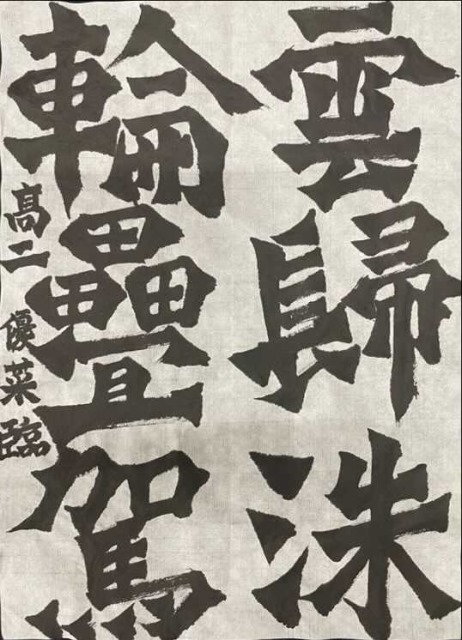 雲歸洙
輪疊駕
高二 優菜 臨